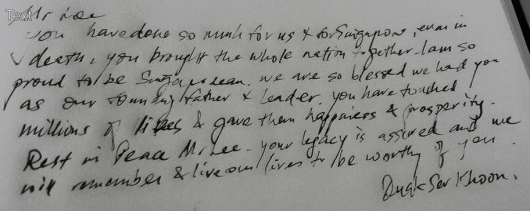 Mr Lee
You have done so much for us & for Singapore, even in
death, you brought the whole nation together. I am so
proud to be Singaporean. We are so blessed we had you
as our founding father & leader. You have touched
millions of lives & gave them happiness & prosperity.
Rest in Peace Mr Lee. Your legacy is assured and we
will remember & live our lives to be worthy of you.
Quak Ser Khoon.